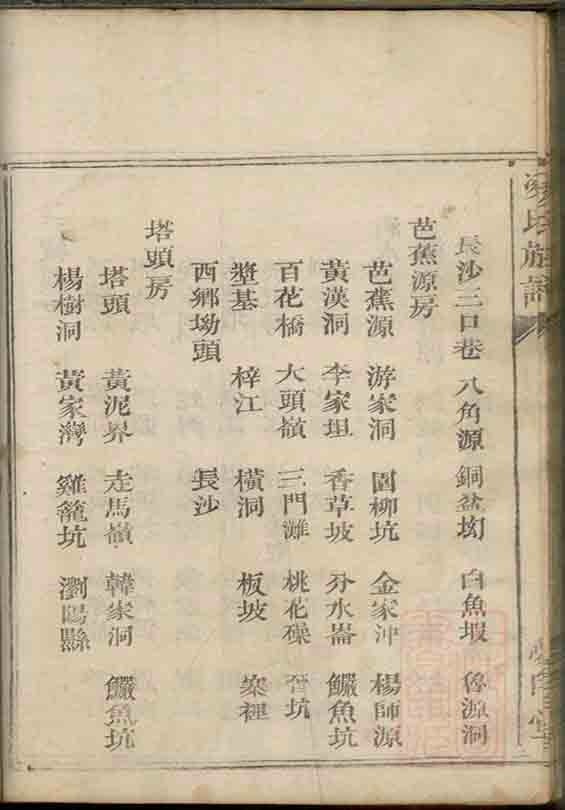 長沙三口巷 八角源 銅盆坳 白魚塅 魯源洞
芭蕉源房
芭蕉源 游家洞 園柳坑 金家沖 楊師源
黃漢洞 李家坦 香草坡 分水崙 鱺魚坑
百花橋 大頭嶺 三門灘 桃花磜 坑
壟基 梓江 橫洞 板坡 寨裡
西鄉坳頭 長沙
塔頭房
塔頭 黃泥界 走馬嶺 韓家洞 鱺魚坑
楊樹洞 黃家灣 雞籠坑 瀏陽縣